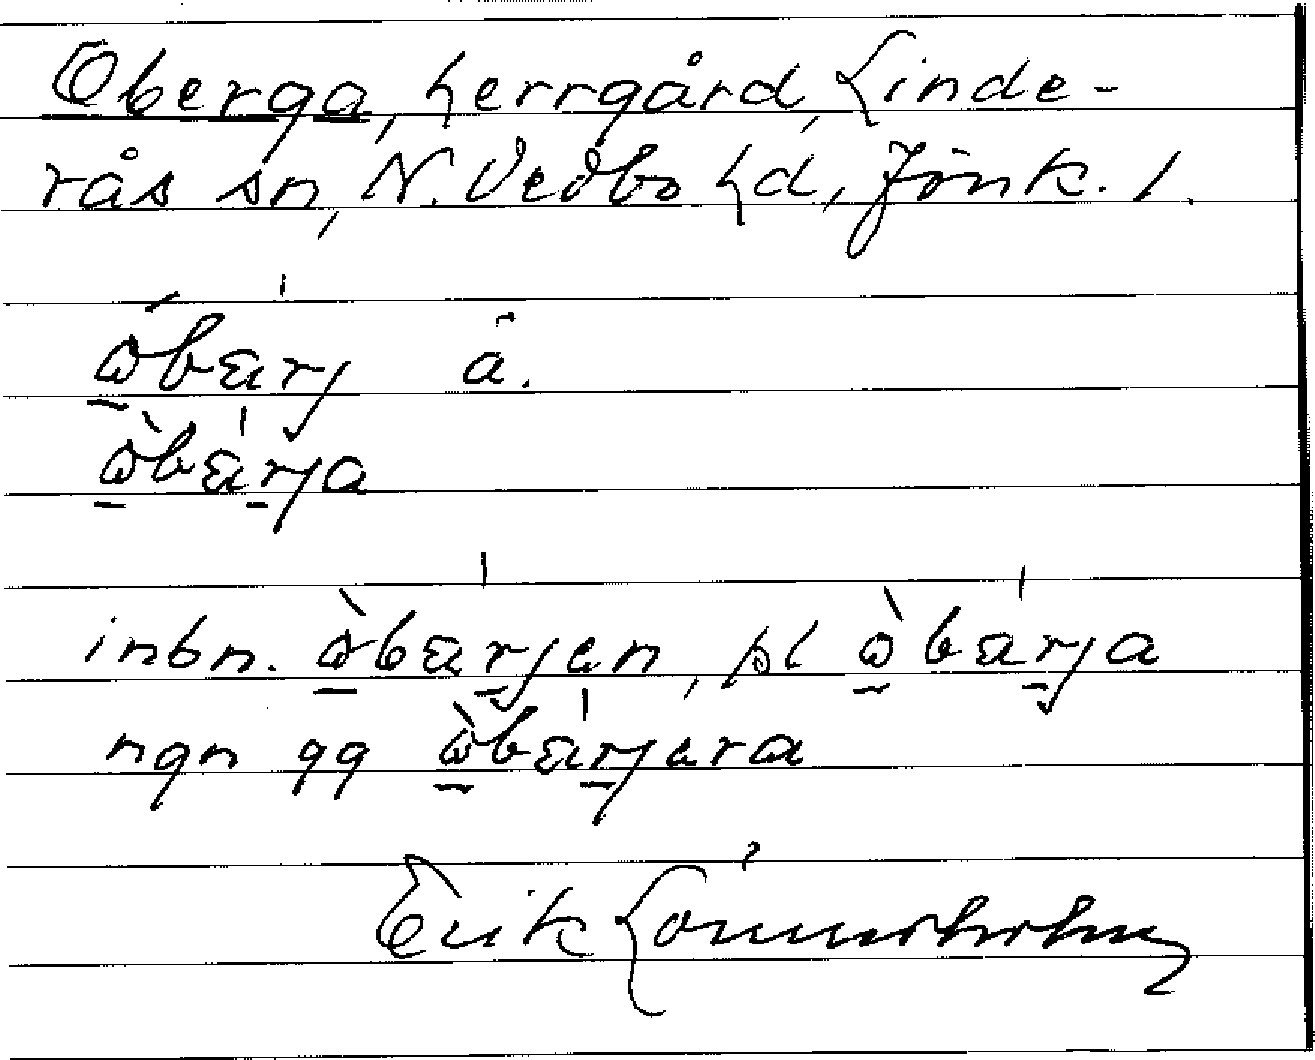 Oberga, herrgård, Linde-
rås sn, N. Vedbo hd, Jönk. l.
ώ̲bærj å.
ὼ̲bær̲ja
inbn. ὼ̲bær̲jen, pl ὼ̲bær̲ja
ngn gg ὼ̲bær̲jera
Erik Lönnerholm